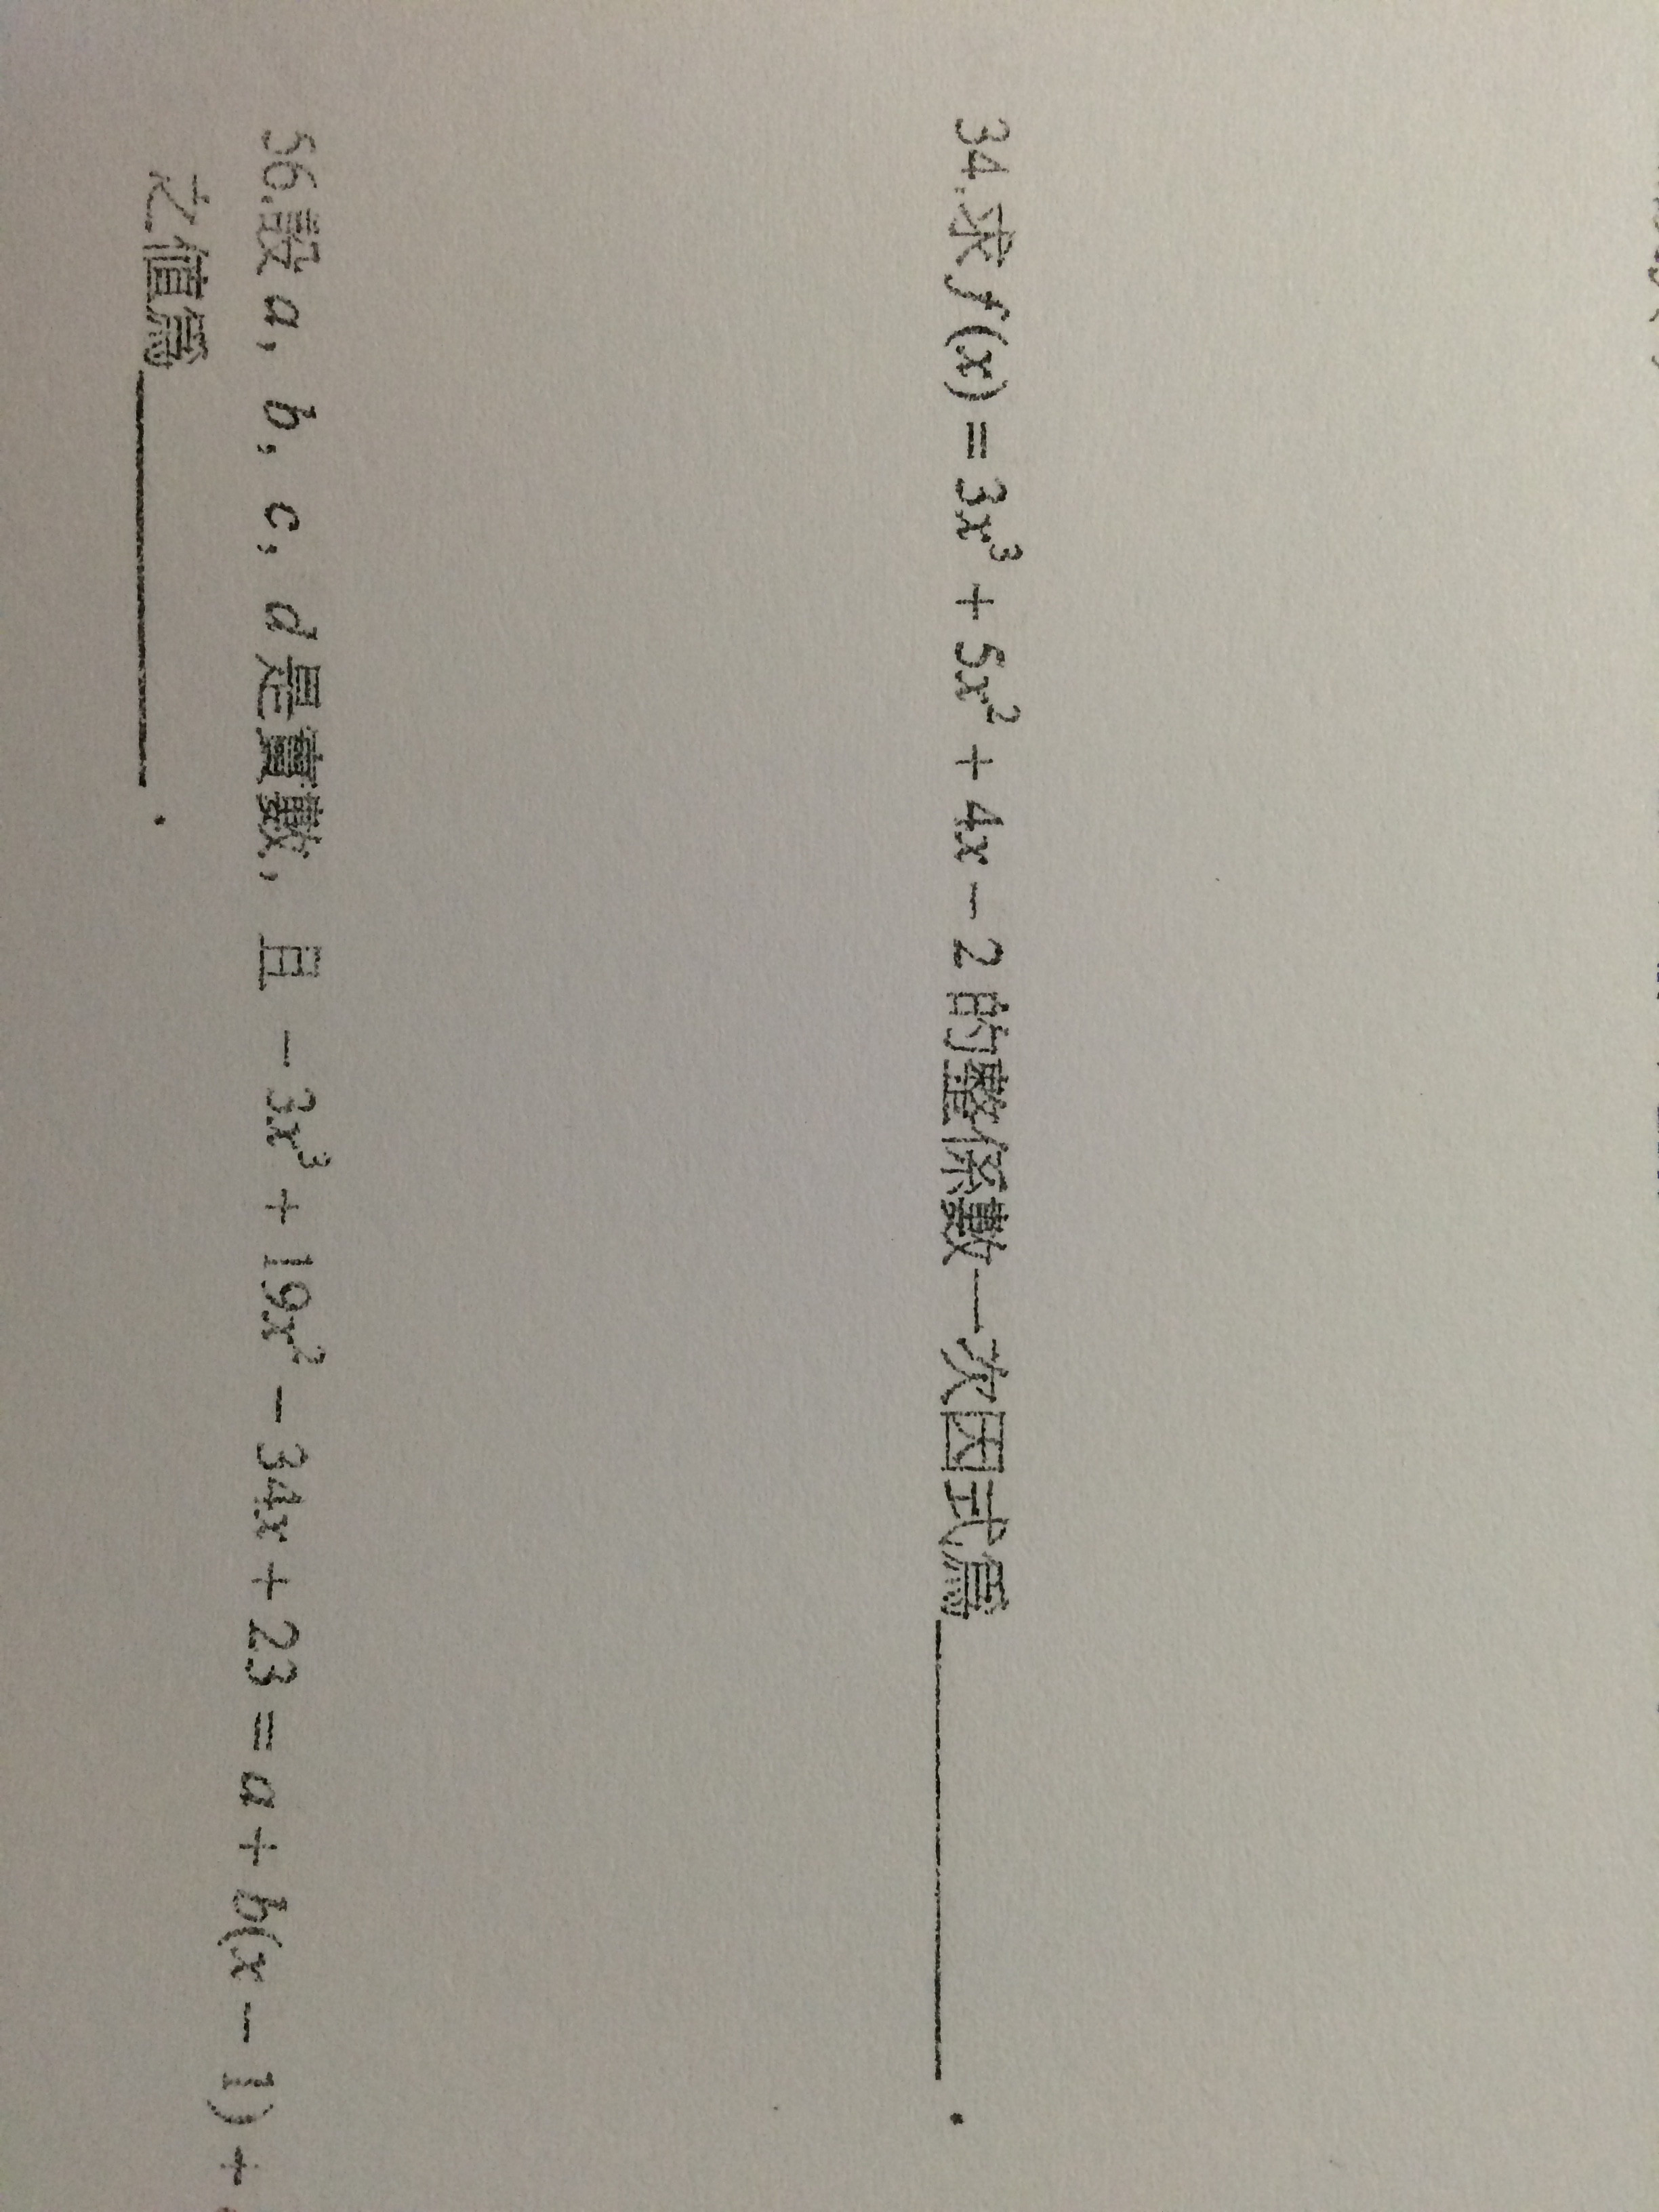 34.求 f(x) = 3x³ + 5x² + 4x − 2 的整係數一次因式為__________.
56.設 a, b, c, d 是實數, 且 − 3x³ + 19x² − 34x + 23 = a + b(x − 1) +
之值為__________.